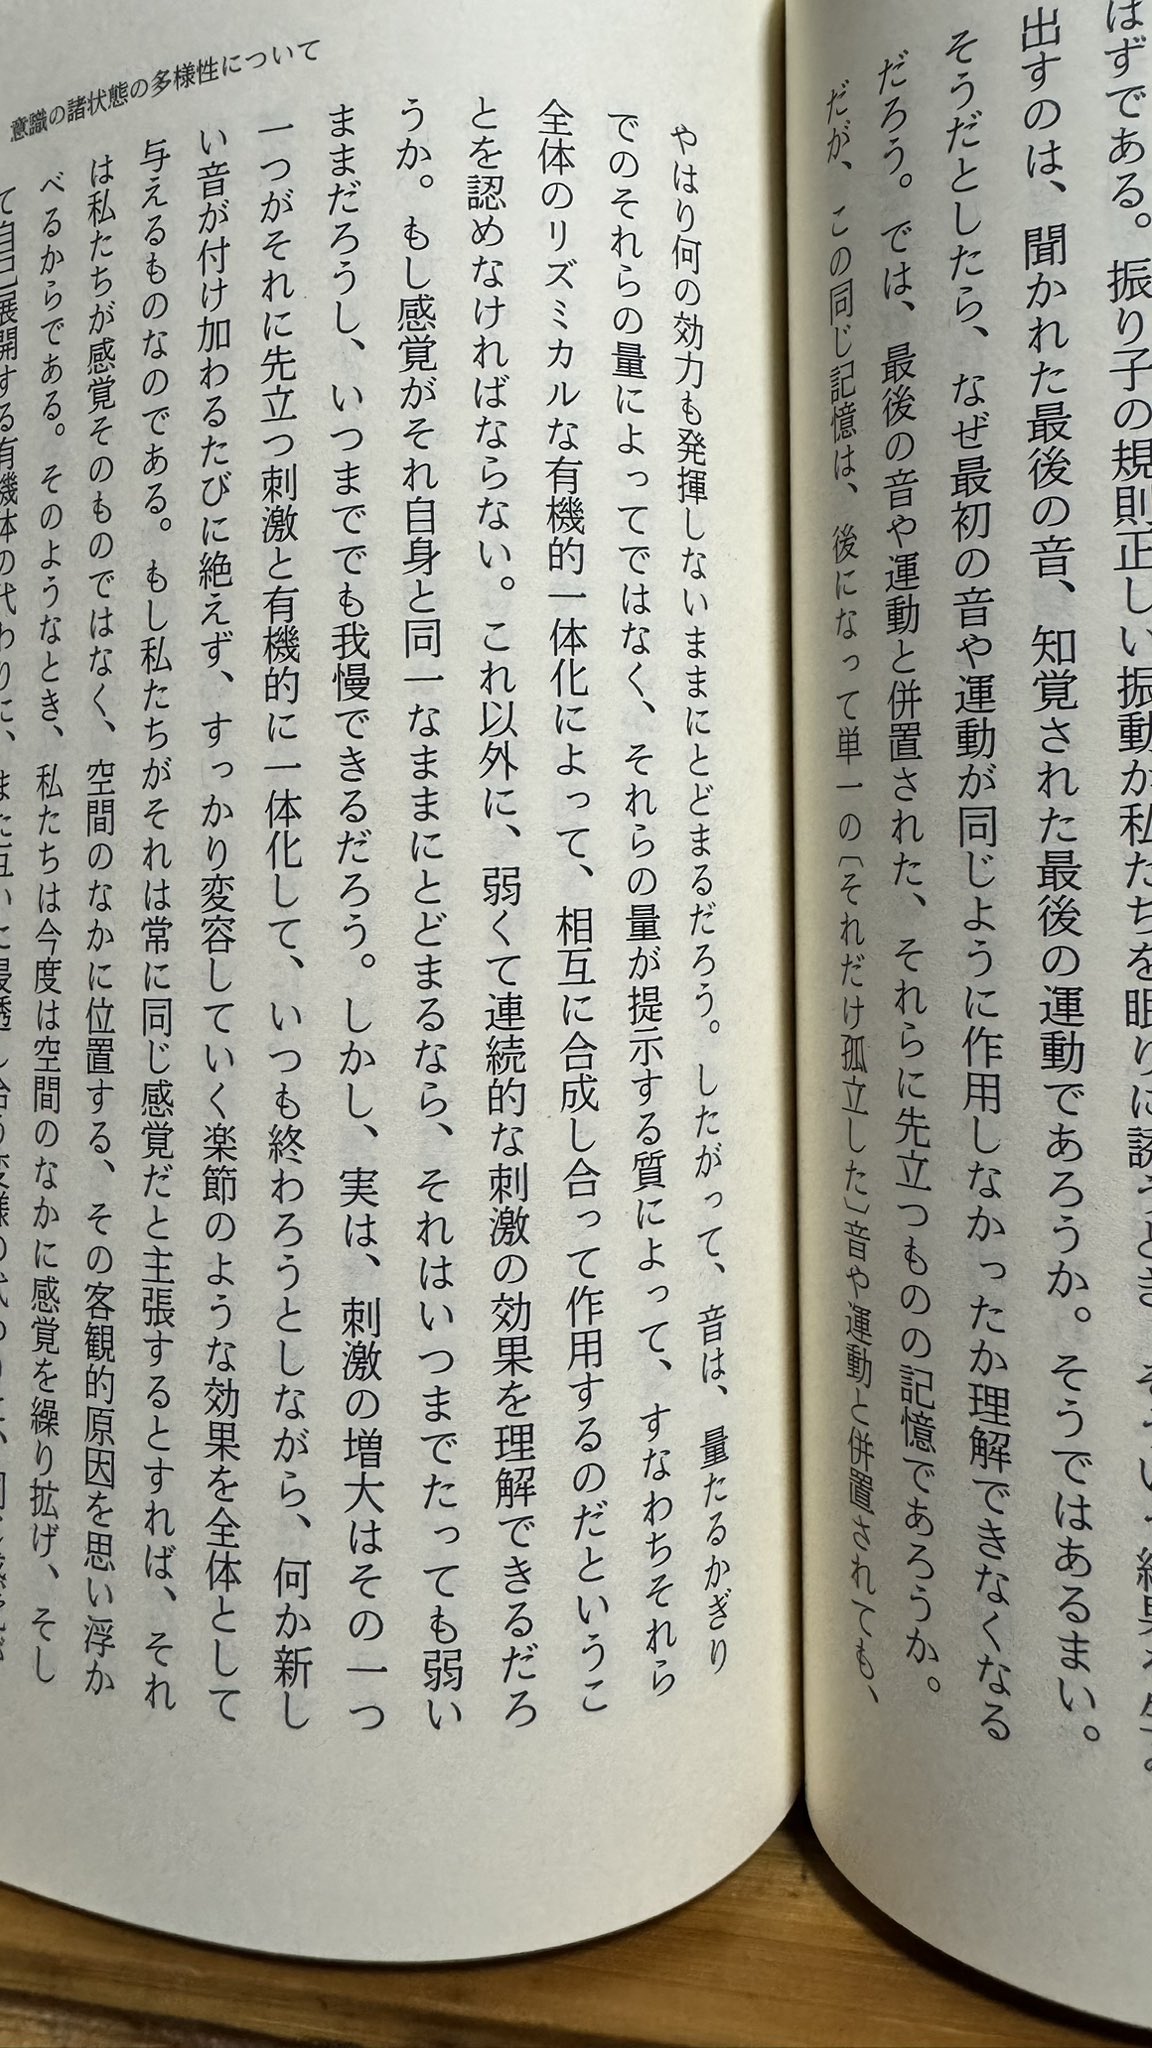 はずである。振り子の規則正しい振動が私たちを眠りに誘うとき、そういう結果を生
出すのは、聞かれた最後の音、知覚された最後の運動であろうか。そうではあるまい。
そうだとしたら、なぜ最初の音や運動が同じように作用しなかったか理解できなくなる
だろう。では、最後の音や運動と併置された、それらに先立つものの記憶であろうか。
だが、この同じ記憶は、後になって単一の〔それだけ孤立した〕音や運動と併置されても、
やはり何の効力も発揮しないままにとどまるだろう。したがって、音は、量たるかぎり
でのそれらの量によってではなく、それらの量が提示する質によって、すなわちそれら
全体のリズミカルな有機的一体化によって、相互に合成し合って作用するのだというこ
とを認めなければならない。これ以外に、弱くて連続的な刺激の効果を理解できるだろ
うか。もし感覚がそれ自身と同一なままにとどまるなら、それはいつまでたっても弱い
ままだろうし、いつまででも我慢できるだろう。しかし、実は、刺激の増大はその一つ
一つがそれに先立つ刺激と有機的に一体化して、いつも終わろうとしながら、何か新し
い音が付け加わるたびに絶えず、すっかり変容していく楽節のような効果を全体として
与えるものなのである。もし私たちがそれは常に同じ感覚だと主張するとすれば、それ
は私たちが感覚そのものではなく、空間のなかに位置する、その客観的原因を思い浮か
べるからである。そのようなとき、私たちは今度は空間のなかに感覚を繰り拡げ、そし
て自己展開する有機体の代わりに、また互いに浸透し合う変様の代わりに、同じ感覚が
意識の諸状態の多様性について